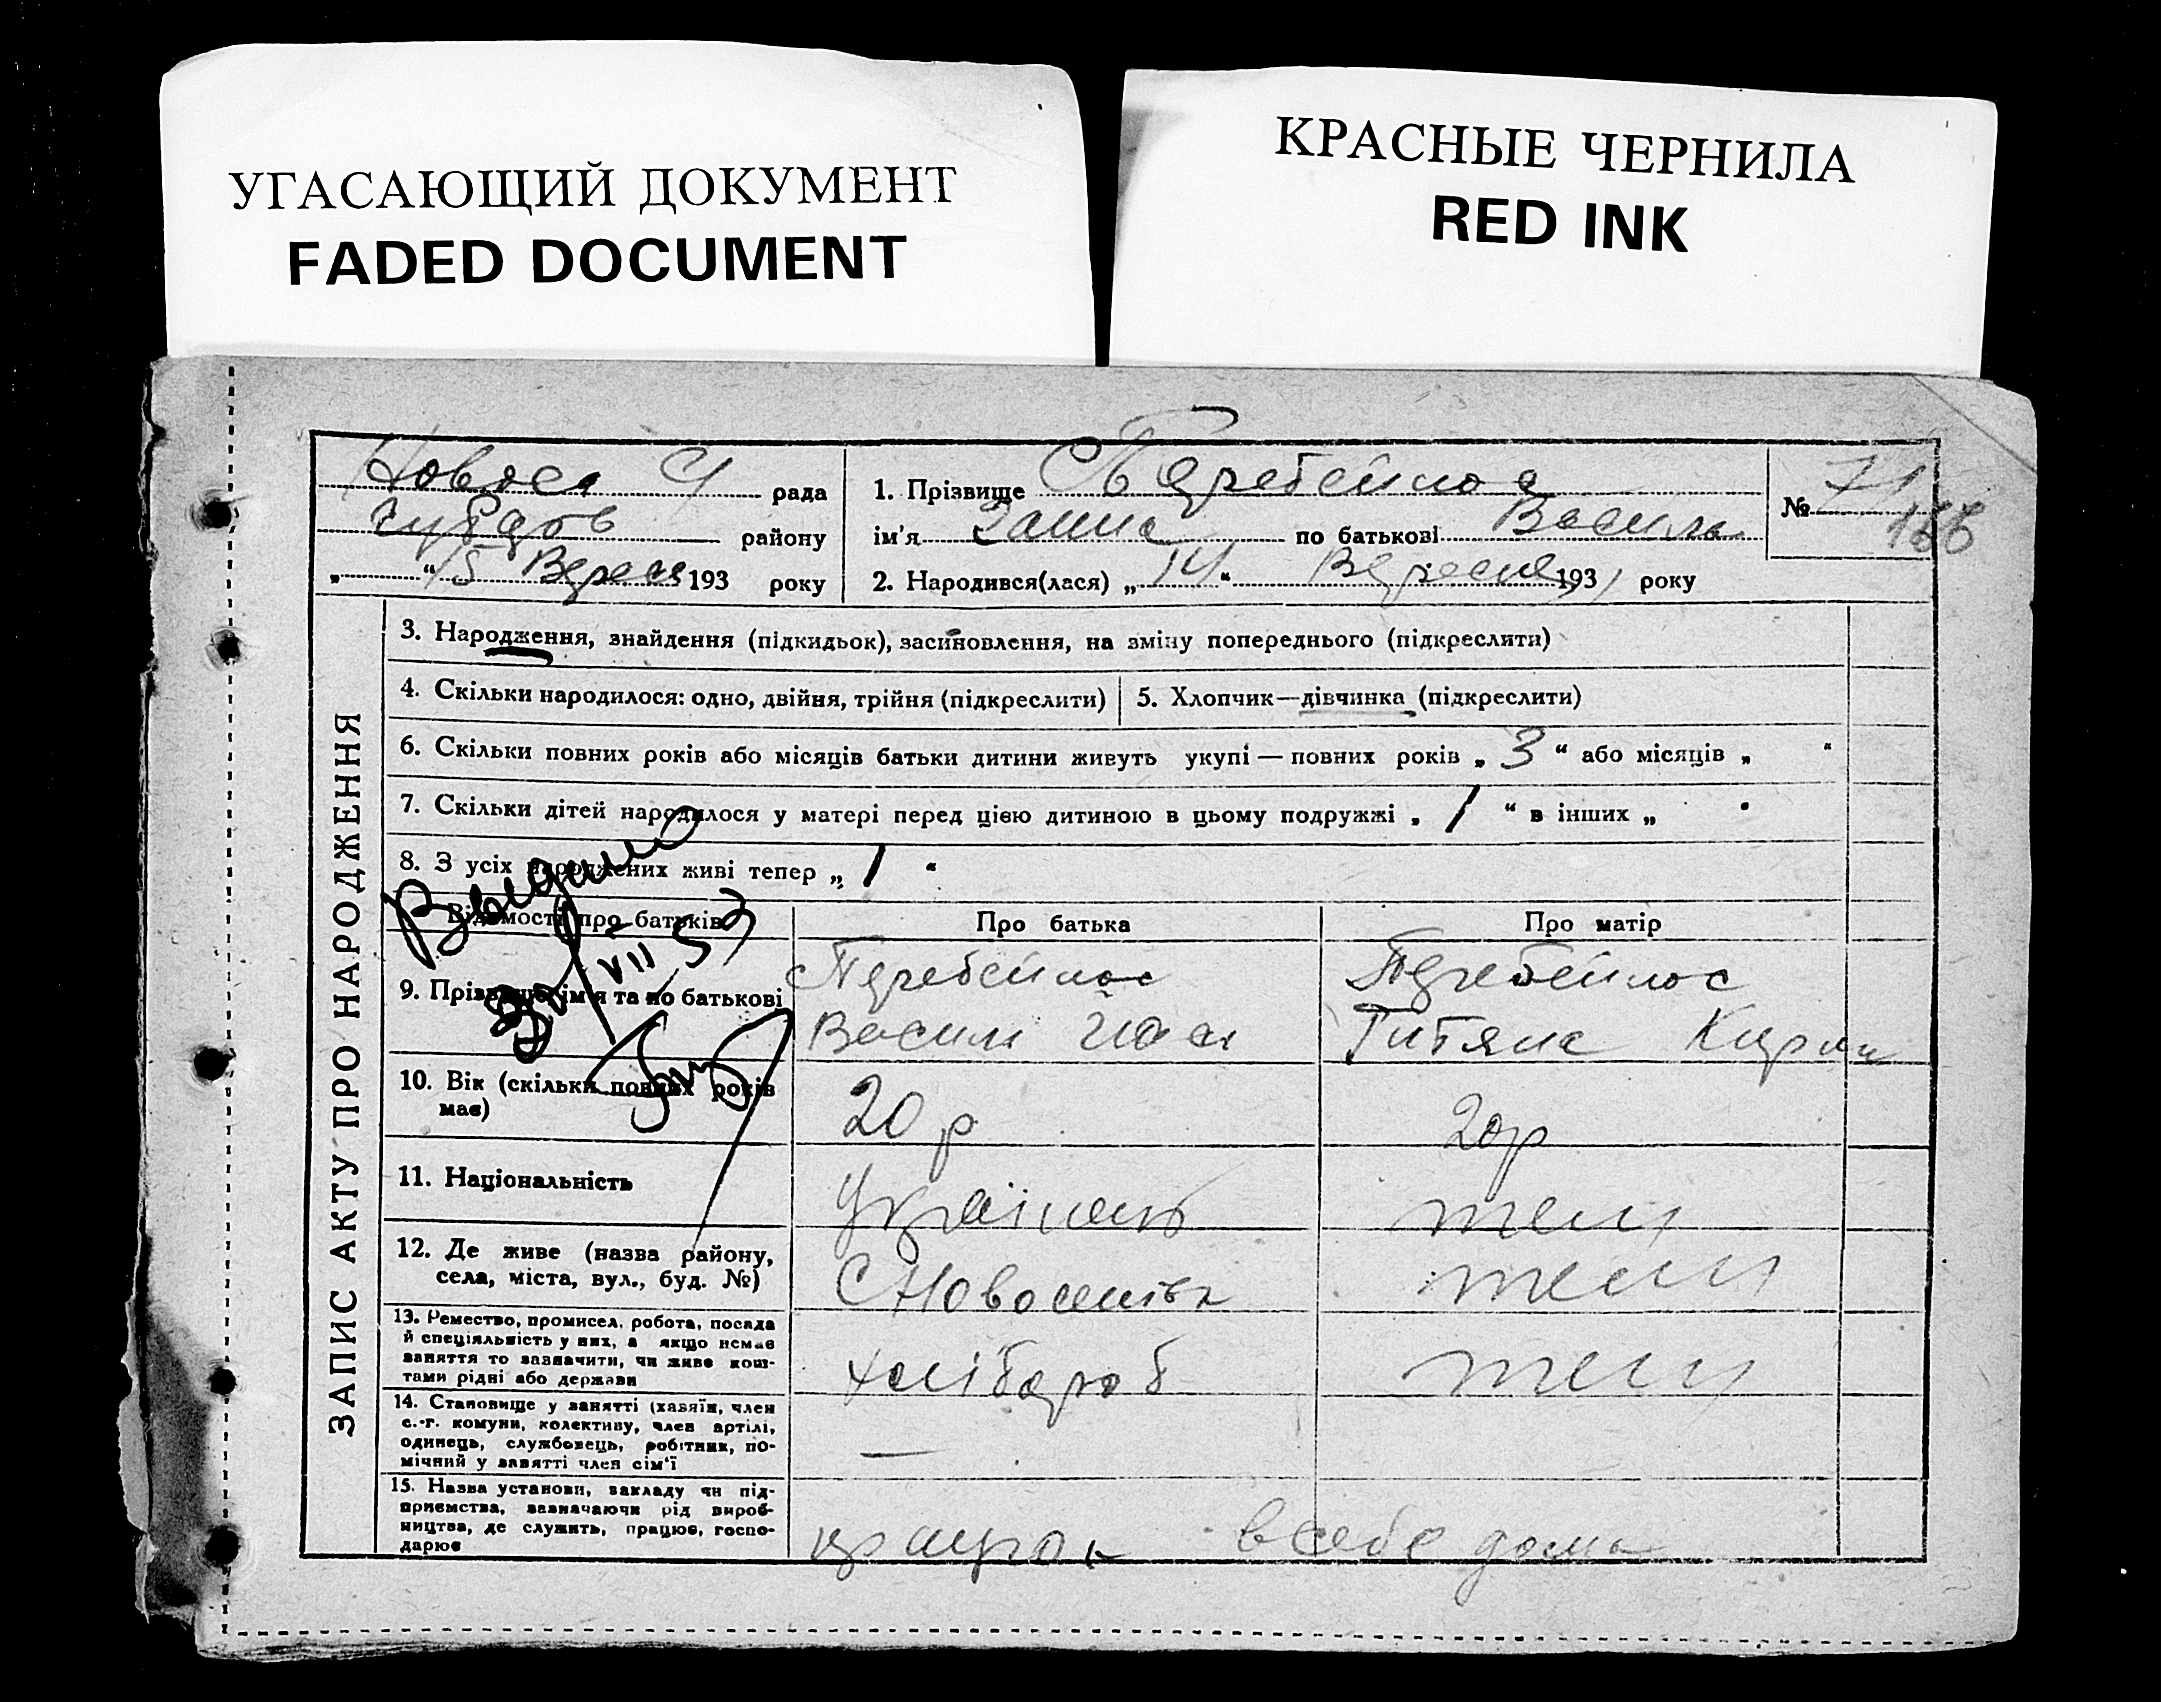 УГАСАЮЩИЙ ДОКУМЕНТ
FADED DOCUMENT
КРАСНЫЕ ЧЕРНИЛА
RED INK
рада
району
„ “ 15 Вересня 193 року
1. Прізвище Перебейнос
ім'я Ганна по батькові Василь
2. Народився(лася) „ 14 “ Вересня 1931 року
№ 71
166
ЗАПИС АКТУ ПРО НАРОДЖЕННЯ
3. Народження, знайдення (підкидьок), засиновлення, на зміну попереднього (підкреслити)
4. Скільки народилося: одно, двійня, трійня (підкреслити)
5. Хлопчик—дівчинка (підкреслити)
6. Скільки повних років або місяців батьки дитини живуть укупі — повних років „ 3 “ або місяців „ “
7. Скільки дітей народилося у матері перед цією дитиною в цьому подружжі „ 1 “ в інших „ “
8. З усіх народжених живі тепер „ 1 “
Відомості про батьків
Про батька
Про матір
VII 53
9. Прізвище, ім'я та по батькові
Перебейнос
Василь
Перебейнос
Титяна Кирил
10. Вік (скільки повних років
має)
20 р
20 р
11. Національність
Українець
теж
12. Де живе (назва району,
села, міста, вул., буд. №)
С Новоселівка
теж
13. Ремество, промисел, робота, посада
й спеціяльність у них, а якщо немає
заняття то зазначити, чи живе кош-
тами рідні або держави
хлібороб
теж
14. Становище у занятті (хазяїн, член
с.-г. комуни, колективу, член артілі,
одинець, службовець, робітник, по-
мічний у занятті член сім'ї
—
15. Назва установи, закладу чи під-
приємства, зазначаючи рід вироб-
ництва, де служить, працює, госпо-
дарює
в себе дома